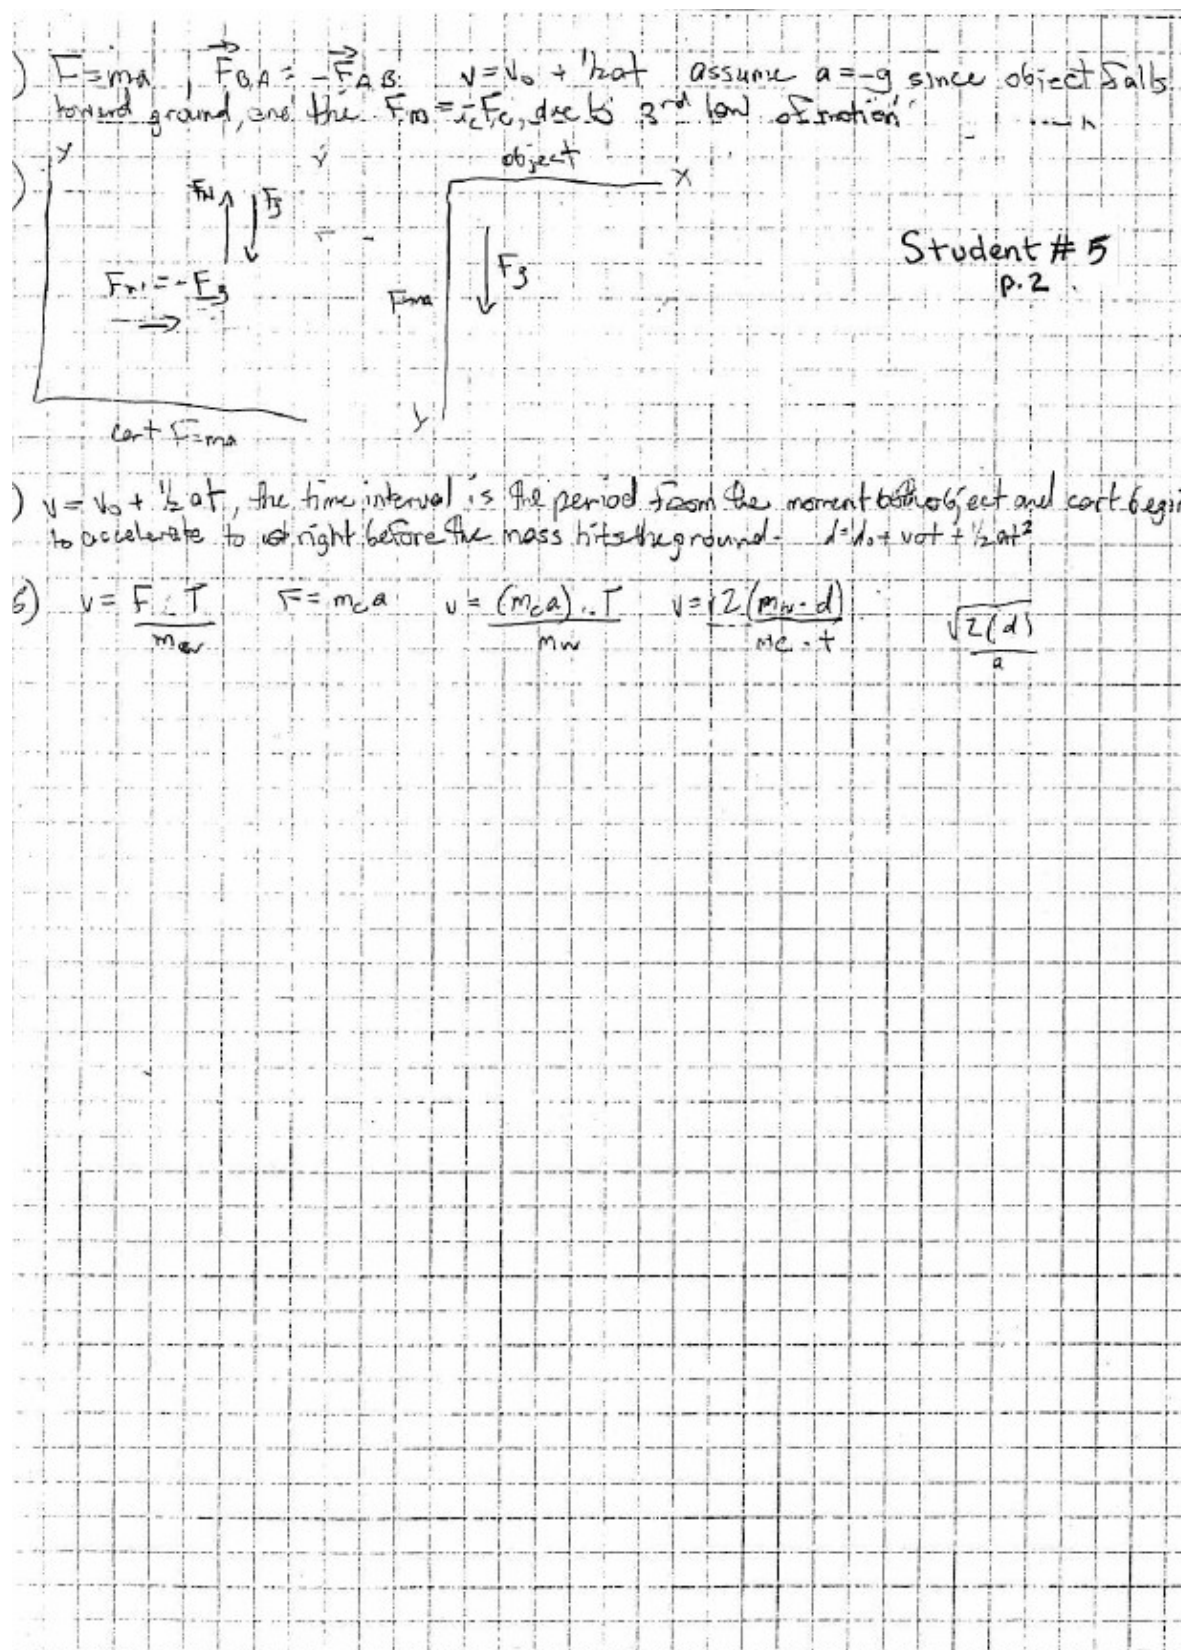 ) F=ma, F⃗BA = -F⃗AB. v=v₀ + ½at assume a=-g since object falls
toward ground, and the Fm = Fc, due to 3rd law of motion
y
object
x
FN
Fg
Fg
Student # 5
p.2
= -Fg
F=ma
y
cart F=ma
) v = v₀ + ½ at, the time interval is the period from the moment both object and cart begin
to accelerate to right before the mass hits the ground. d=d₀+v₀t+½at²
5) v = F · T / m F = mc a v = (mc a) · T / mw v = √2(mw · d) / mc · t √2(d) / a